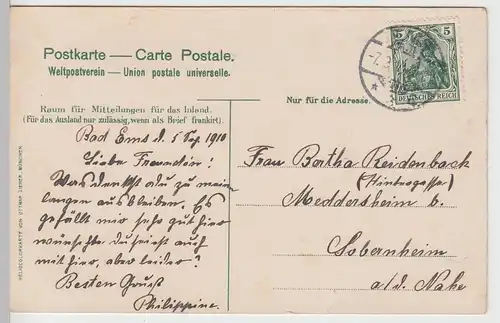 Postkarte — Carte Postale.
Weltpostverein — Union postale universelle.
Raum für Mitteilungen für das Inland.
(Für das Ausland nur zulässig, wenn als Brief frankirt).
Nur für die Adresse.
5 5
DEUTSCHES REICH
Bad Ems d. 5 Sep. 1910
Liebe Freundin!
Was denkst du zu mein
langen ausbleiben. Es
gefällt mir sehr gut hier
wünschte du seist auch
mit hier, aber leider?
Besten Gruß
Philippine.
Frau Bertha Reidenbach
(Hintergasse)
Meddersheim b.
Sobernheim
a/d. Nahe